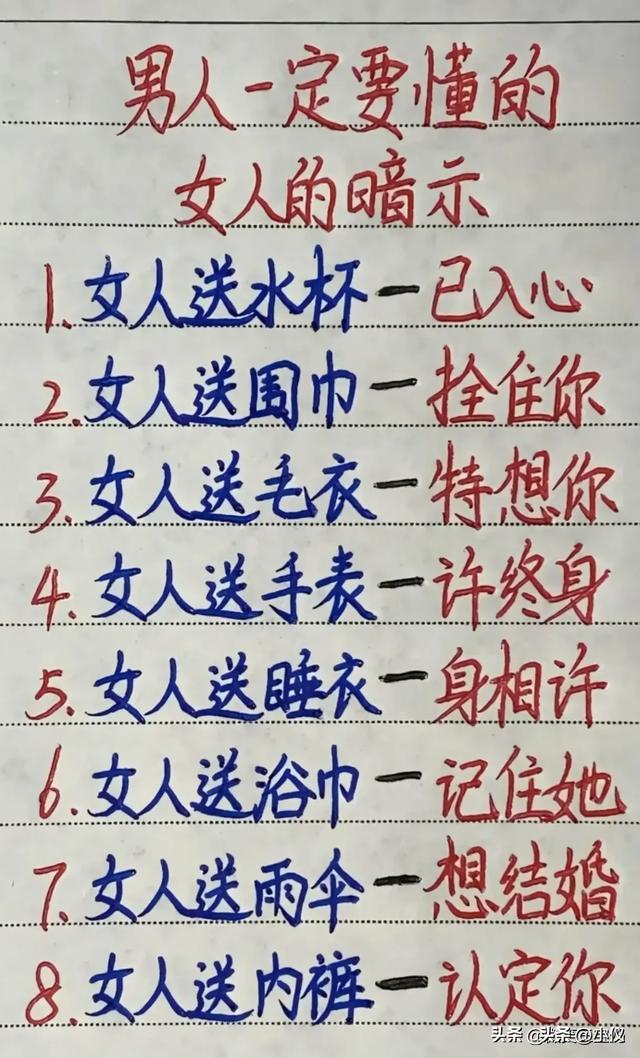 男人一定要懂的
女人的暗示
1.女人送水杯一已入心
2.女人送围巾一拴住你
3.女人送毛衣一特想你
4.女人送手表一许终身
5.女人送睡衣一身相许
6.女人送浴巾一记住她
7.女人送雨伞一想结婚
8.女人送内裤一认定你